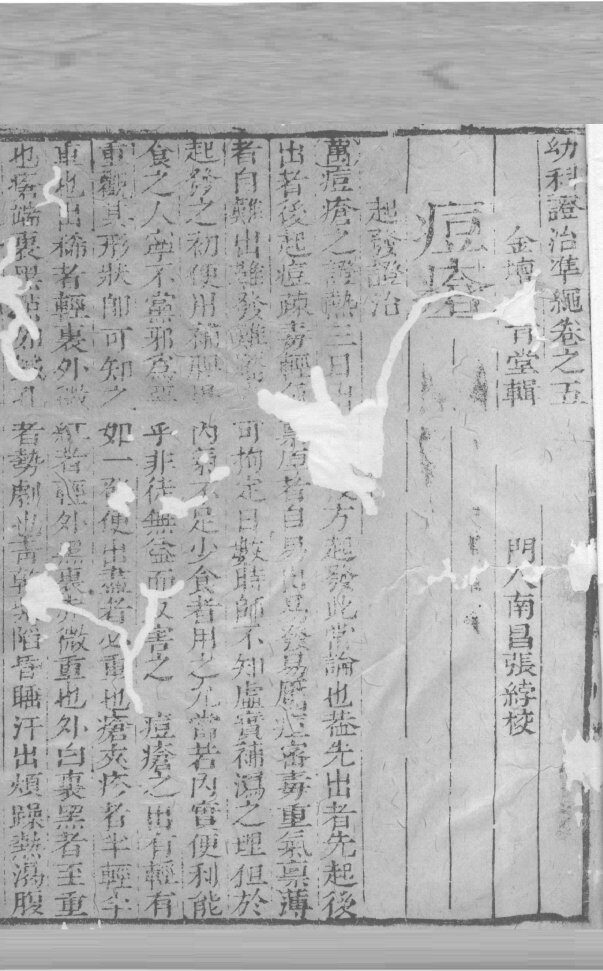 幼科證治準繩卷之五
金壇 堂輯
門人南昌張綍校
痘瘡
起發證治
萬痘瘡之證熱三日 後方起發此常論也葢先出者先起後
出者後起痘疎毒輕 稟厚者自易出 易發易靨痘密毒重氣稟薄
者自難出難發難 可拘定日數時師不知虛實補瀉之理但於
起發之初便用補脾 內 不足少食者用之尤當若內實便利能
食之人寧不黨邪爲 乎非徒無益而反害之 痘瘡之出有輕有
重觀其形狀即可知之 如一 便出盡者必重也瘡夾疹者半輕半
重也出稀者輕裏外微 紅者輕外黑裏赤微重也外白裏黑者至重
也瘡端裏黑點如 孔 者勢劇也青乾 陷昏睡汗出煩躁熱渴腹